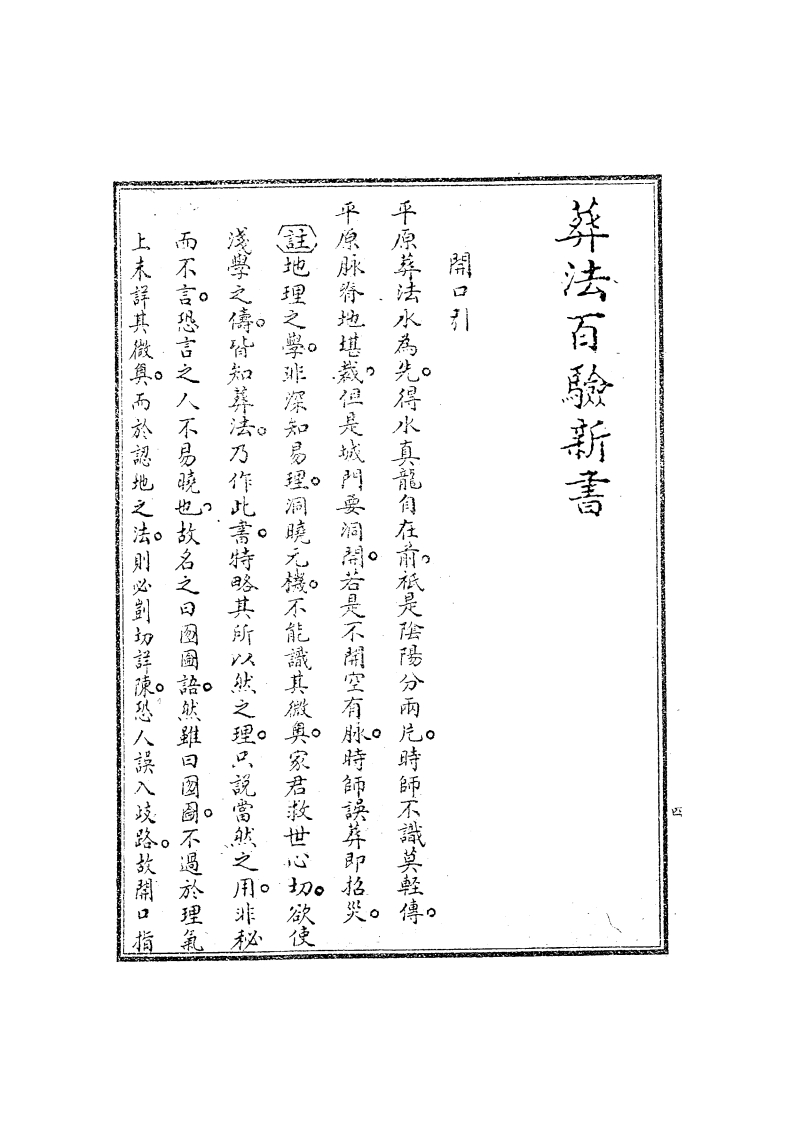 葬法百驗新書
開口引
平原葬法水為先。得水真龍自在前、祗是陰陽分兩片。時師不識莫輕傳。
平原脉脊地堪裁、但是城門要洞開。若是不開空有脉。時師誤葬即招災。
註地理之學。非深知易理。洞曉元機。不能識其微奧。家君救世心切。欲使
淺學之儔。皆知葬法。乃作此書。特略其所以然之理。只說當然之用。非秘
而不言。恐言之人不易曉也、故名之曰囫圇語。然雖曰囫圇。不過於理氣
上未詳其微奧。而於認地之法。則必剴切詳陳。恐人誤入歧路。故開口指
四